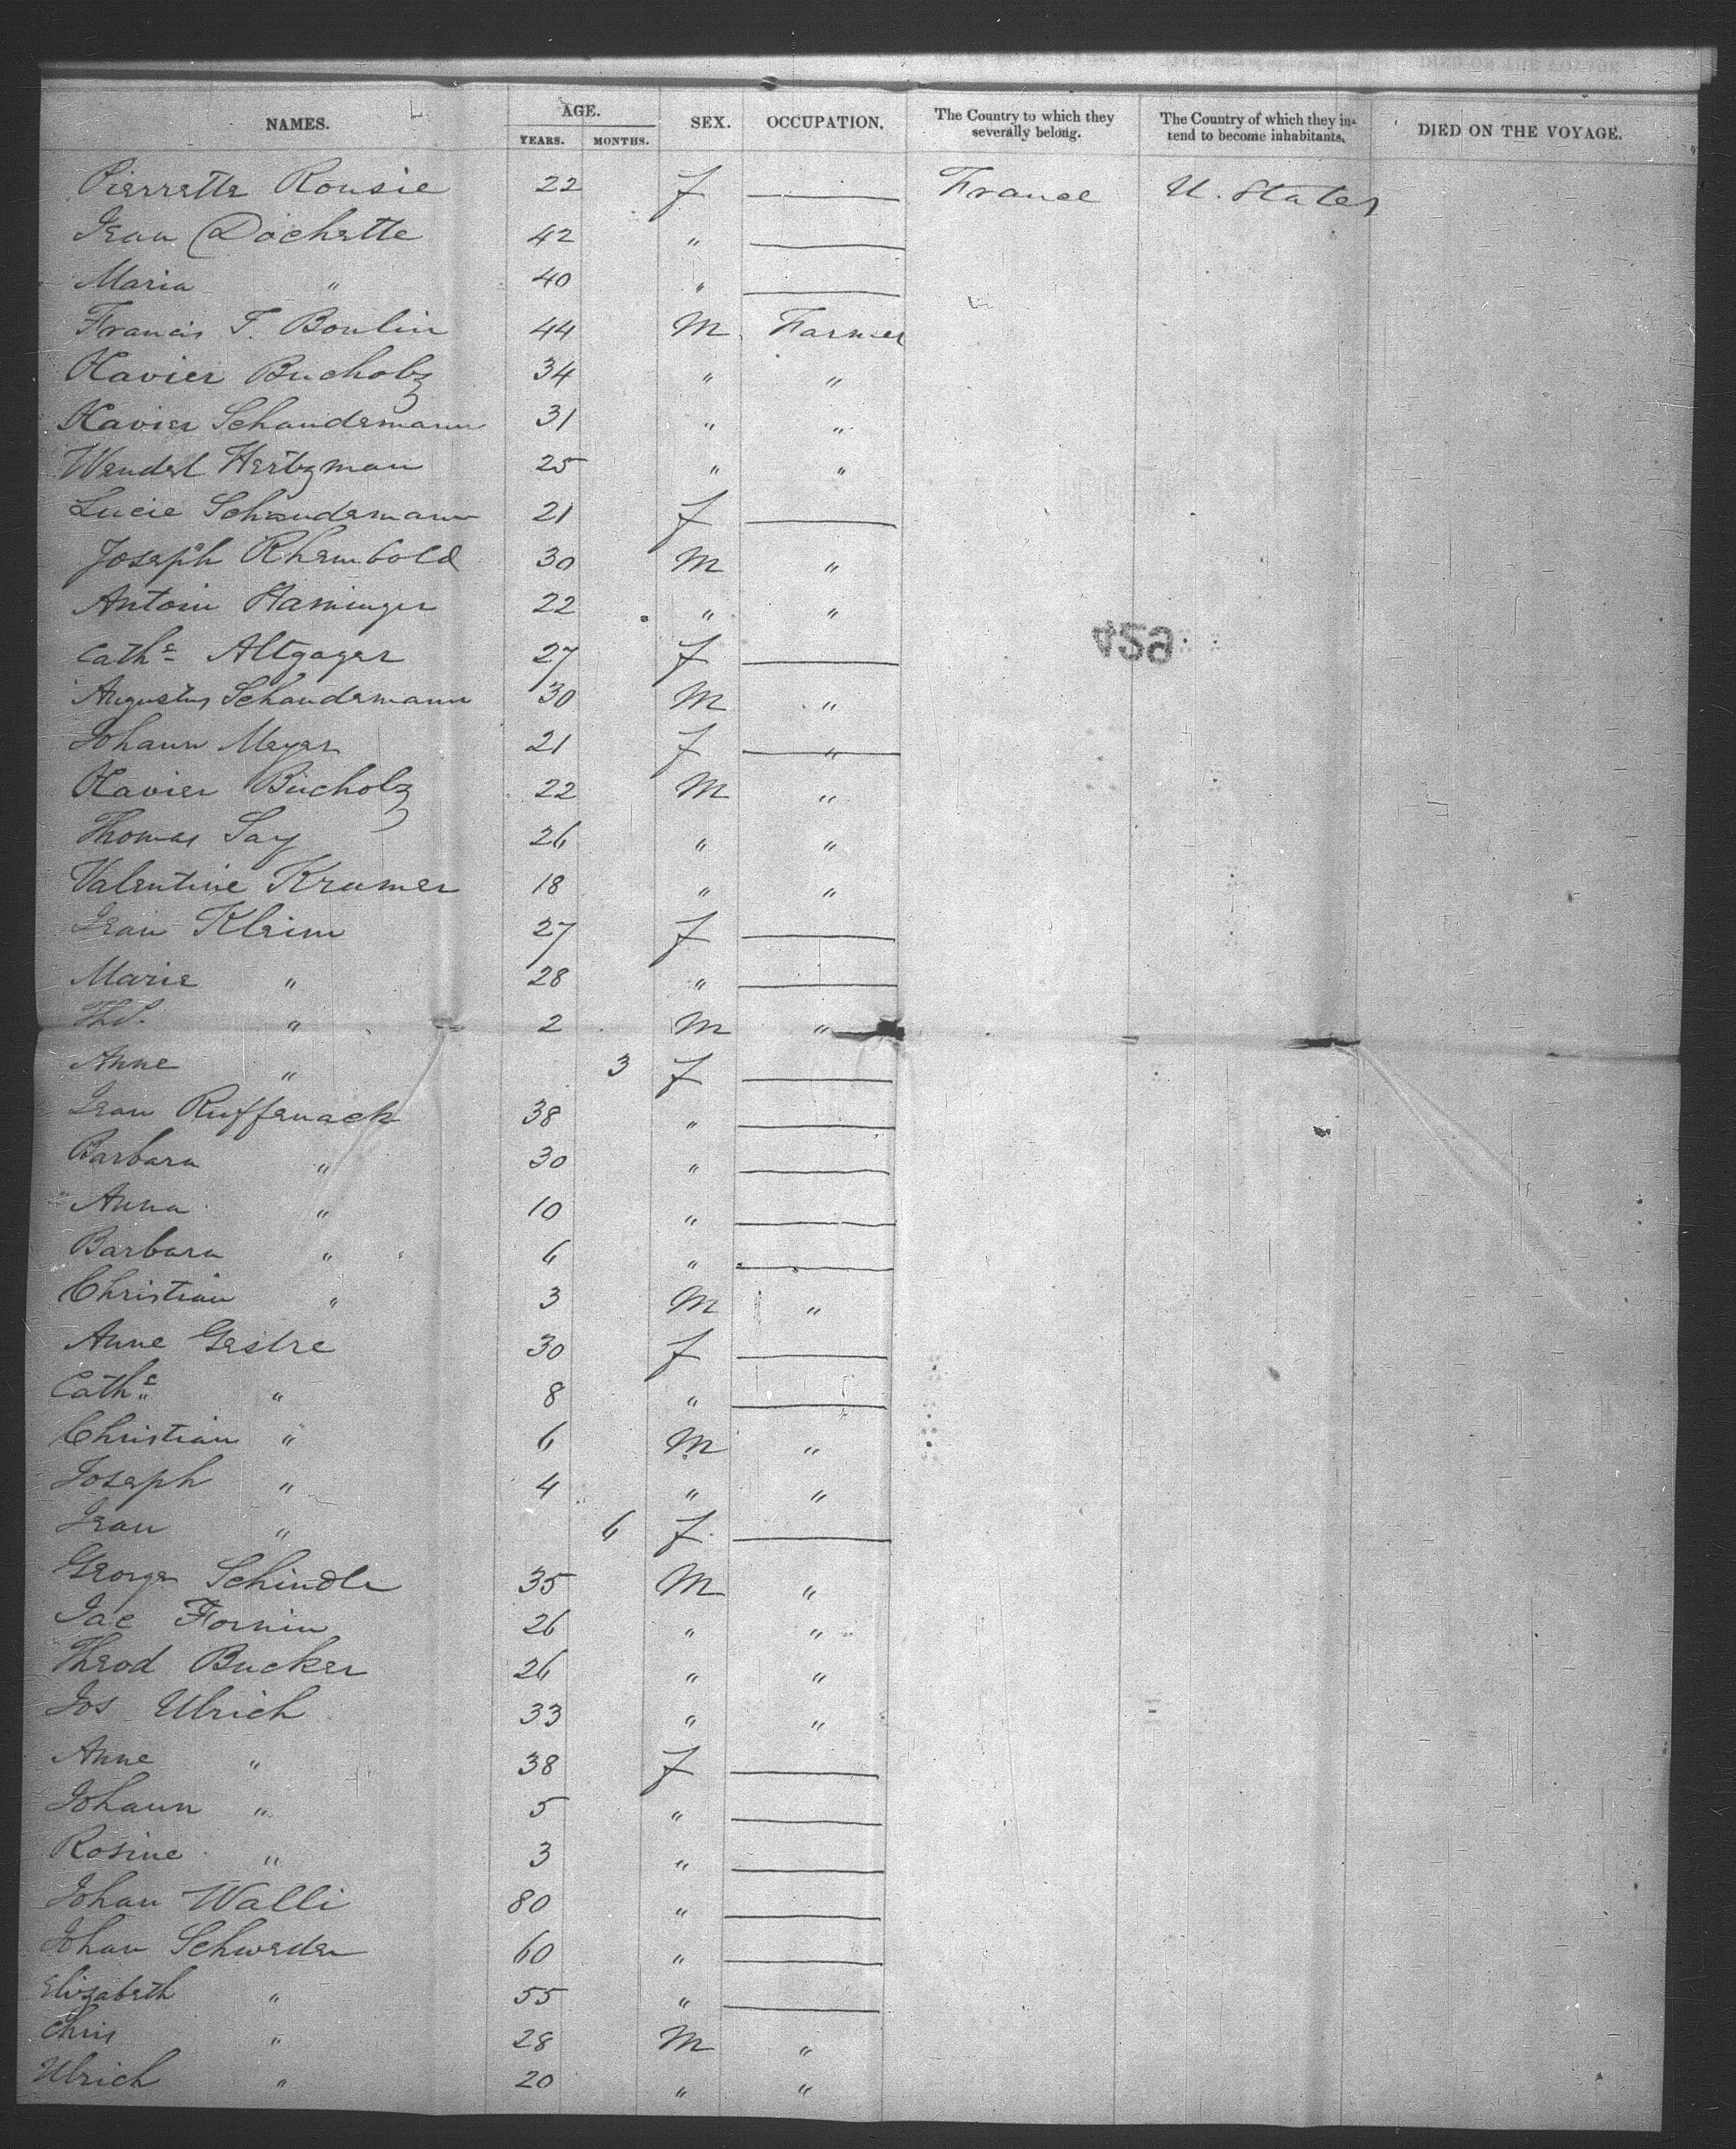 NAMES. AGE. YEARS. MONTHS. SEX. OCCUPATION. The Country to which they severally belong. The Country of which they intend to become inhabitants. DIED ON THE VOYAGE.
Pierrette Rousie 22 f —— France U. States
Jean Dochette 42 " ——
Maria " 40 " ——
Francis T. Boulin 44 M Farmer
Xavier Bucholz 34 " "
Xavier Schandemann 31 " "
Wendel Hertzman 25 " "
Lucie Schandemann 21 f ——
Joseph Rhembold 30 M "
Antoin Haminger 22 " "
Cathe Altgager 27 f ——
Augustus Schandemann 30 M "
Johann Meyer 21 f —"—
Xavier Bucholz 22 M "
Thomas Say 26 " "
Valentine Kramer 18 " "
Jean Kleim 27 f ——
Marie " 28 " ——
Thd. " 2 M "
Anne " 3 f ——
Jean Ruffenach 38 " ——
Barbara " 30 " ——
Anna " 10 " ——
Barbara " 6 " ——
Christian " 3 M "
Anne Gestre 30 f ——
Cathe " 8 " ——
Christian " 6 M "
Joseph " 4 " "
Jean " 6 f ——
George Schindle 35 M "
Jac Flornin 26 " "
Theod Bucker 26 " "
Jos Ulrich 33 " "
Anne " 38 f ——
Johann " 5 " ——
Rosine " 3 " ——
Johan Walli 80 " ——
Johan Schweder 60 " ——
Elizabeth " 55 " ——
Chris " 28 M "
Ulrich " 20 " "